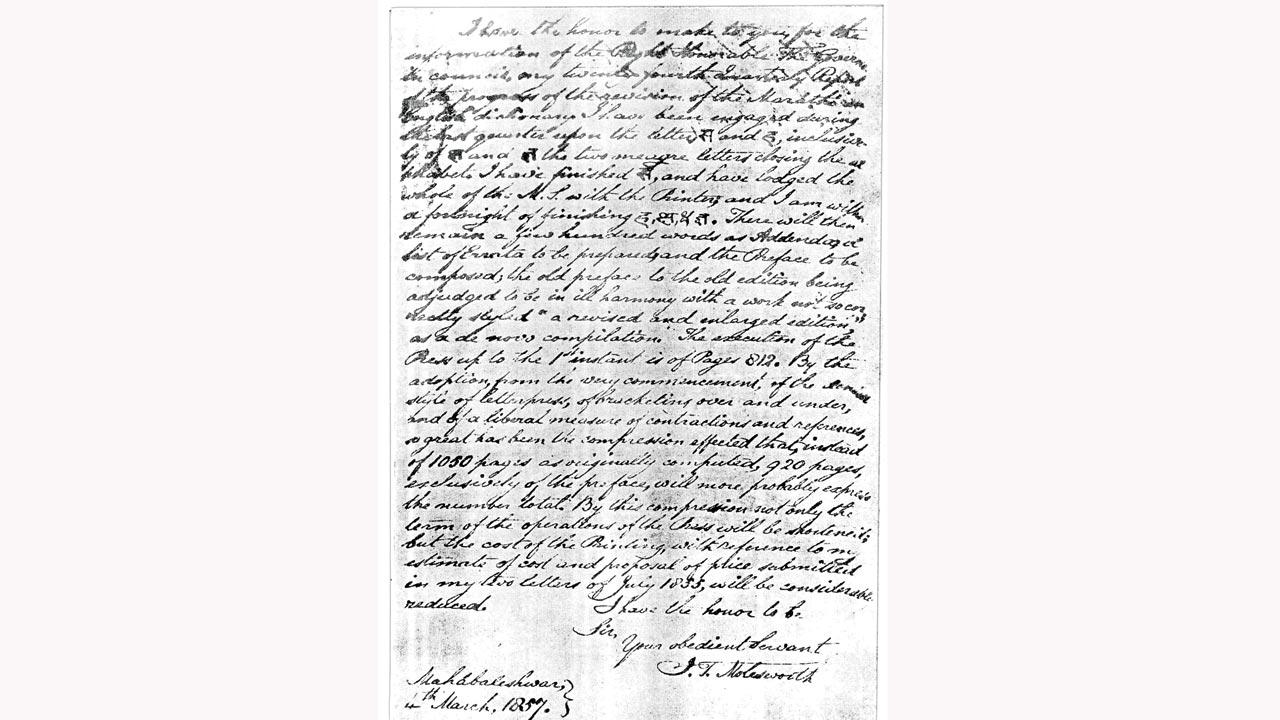 I have the honor to make to you, for the
information of the Right Honorable the Govern
in council, my twenty fourth Quarterly Report
of the progress of the revision of the Marathi and
English dictionary. I have been engaged during
the last quarter upon the letters and inclusive-
ly of and the two meagre letters closing the al
phabet. I have finished and have lodged the
whole of the M.S. with the Printer; and I am within
a fortnight of finishing There will then
remain a few hundred words as Addenda, a
list of Errata to be prepared, and the Preface to be
composed; the old preface to the old edition being
adjudged to be in ill harmony with a work not so cor
rectly styled "a revised and enlarged edition"
as a de novo compilation. The execution of the
Press up to the 1st instant is of Pages 812. By the
adoption, from the very commencement, of the
style of letterpress, of bracketing over and under,
and of a liberal measure of contractions and references,
so great has been the compression effected that, instead
of 1050 pages as originally computed, 920 pages,
exclusively of the preface, will more probably express
the number total. By this compression not only the
term of the operations of the Press will be shortened;
but the cost of the Printing, with reference to m
estimate of cost and proposal of price submitted
in my two letters of July will be considerable
reduced.
I have the honor to be
Sir,
Your obedient Servant
J. T. Molesworth
Mahabaleshwar,
4th March, 1857.